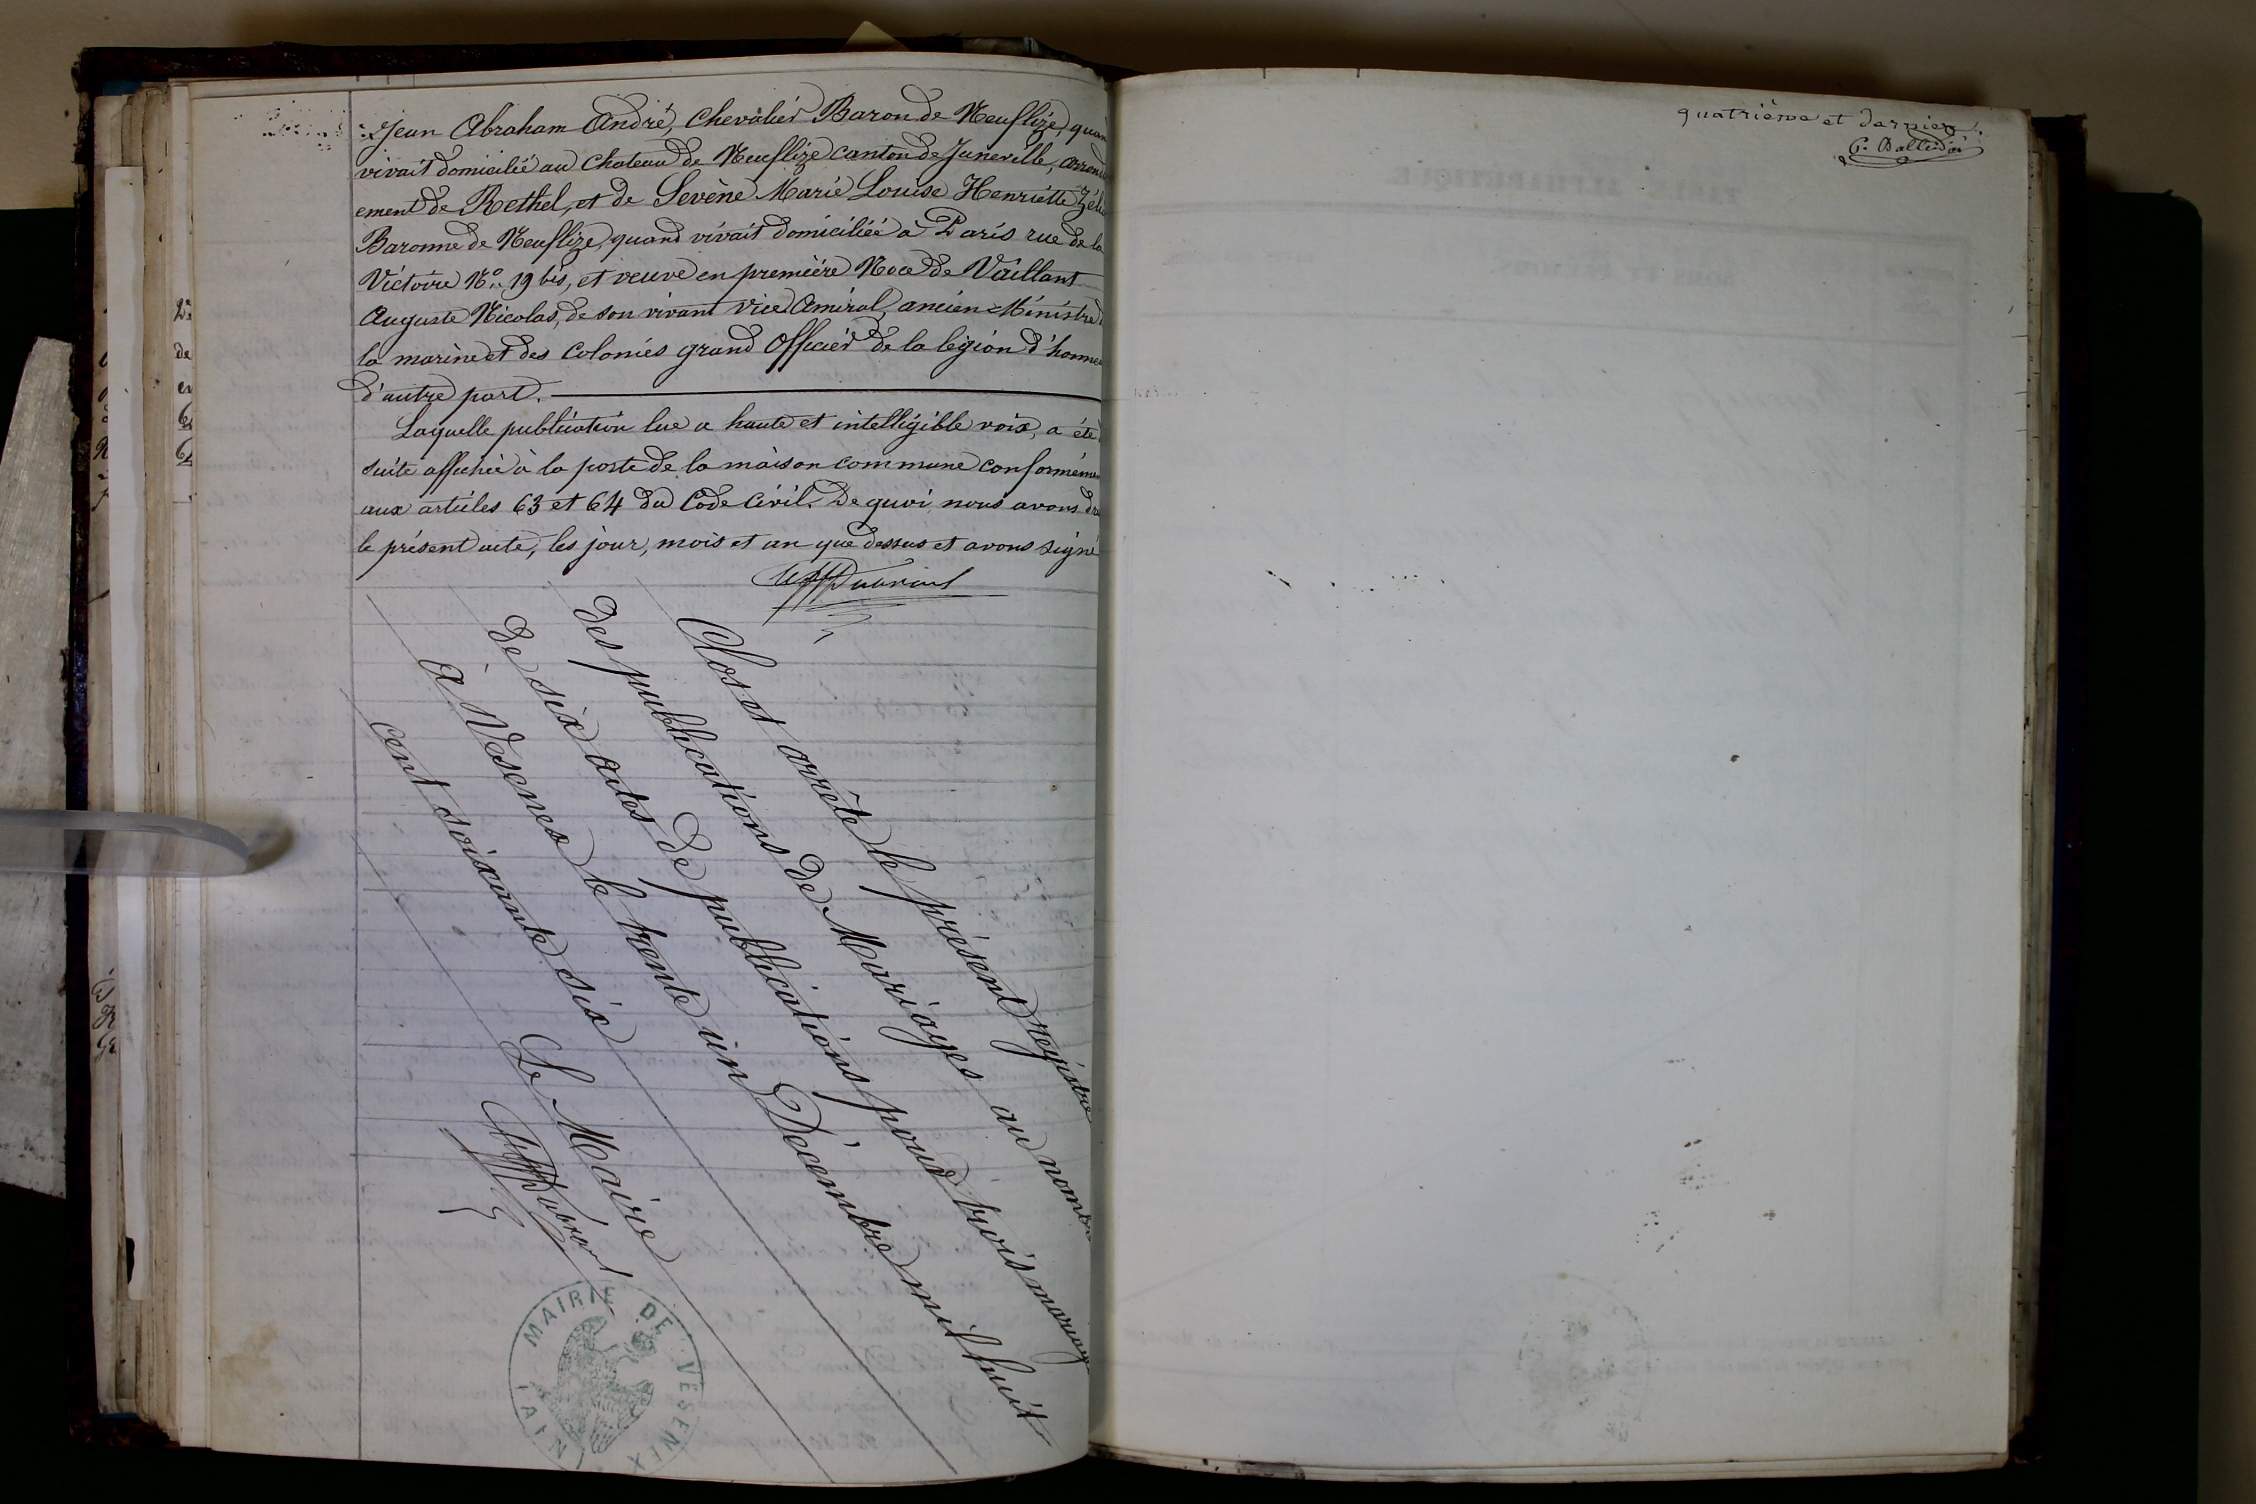 Jean Abraham André, Chevalier Baron de Neuflize, quan
vivait domicilié au Chateau de Neuflize canton de Juneville, arrond
ement de Rethel, et de Sevène Marie Louise Henriette Zélie
Baronne de Neuflize, quand vivait domiciliée à Paris rue de la
Victoire No. 19 bis, et veuve en première Noce de Vaillant
Auguste Nicolas, de son vivant vice Amiral, ancien Ministre d
la marine et des colonies grand Officier de la legion d'honneu
d'autre part.
Laquelle publication lue a haute et intelligible voix, a été
suite affichée à la porte de la maison commune conformémen
aux articles 63 et 64 du Code Civil. De quoi, nous avons dre
le présent acte, les jour, mois et an que dessus et avons signé
Clos et arrêté le présent registre
des publications de Mariages au nombre
de six actes de publications pour trois mariages
à Vesenex le trente un Décembre mil huit
cent soixante six
Le Maire
MAIRIE DE VESENEX
(AIN)
quatrième et dernier.
2e
de
en